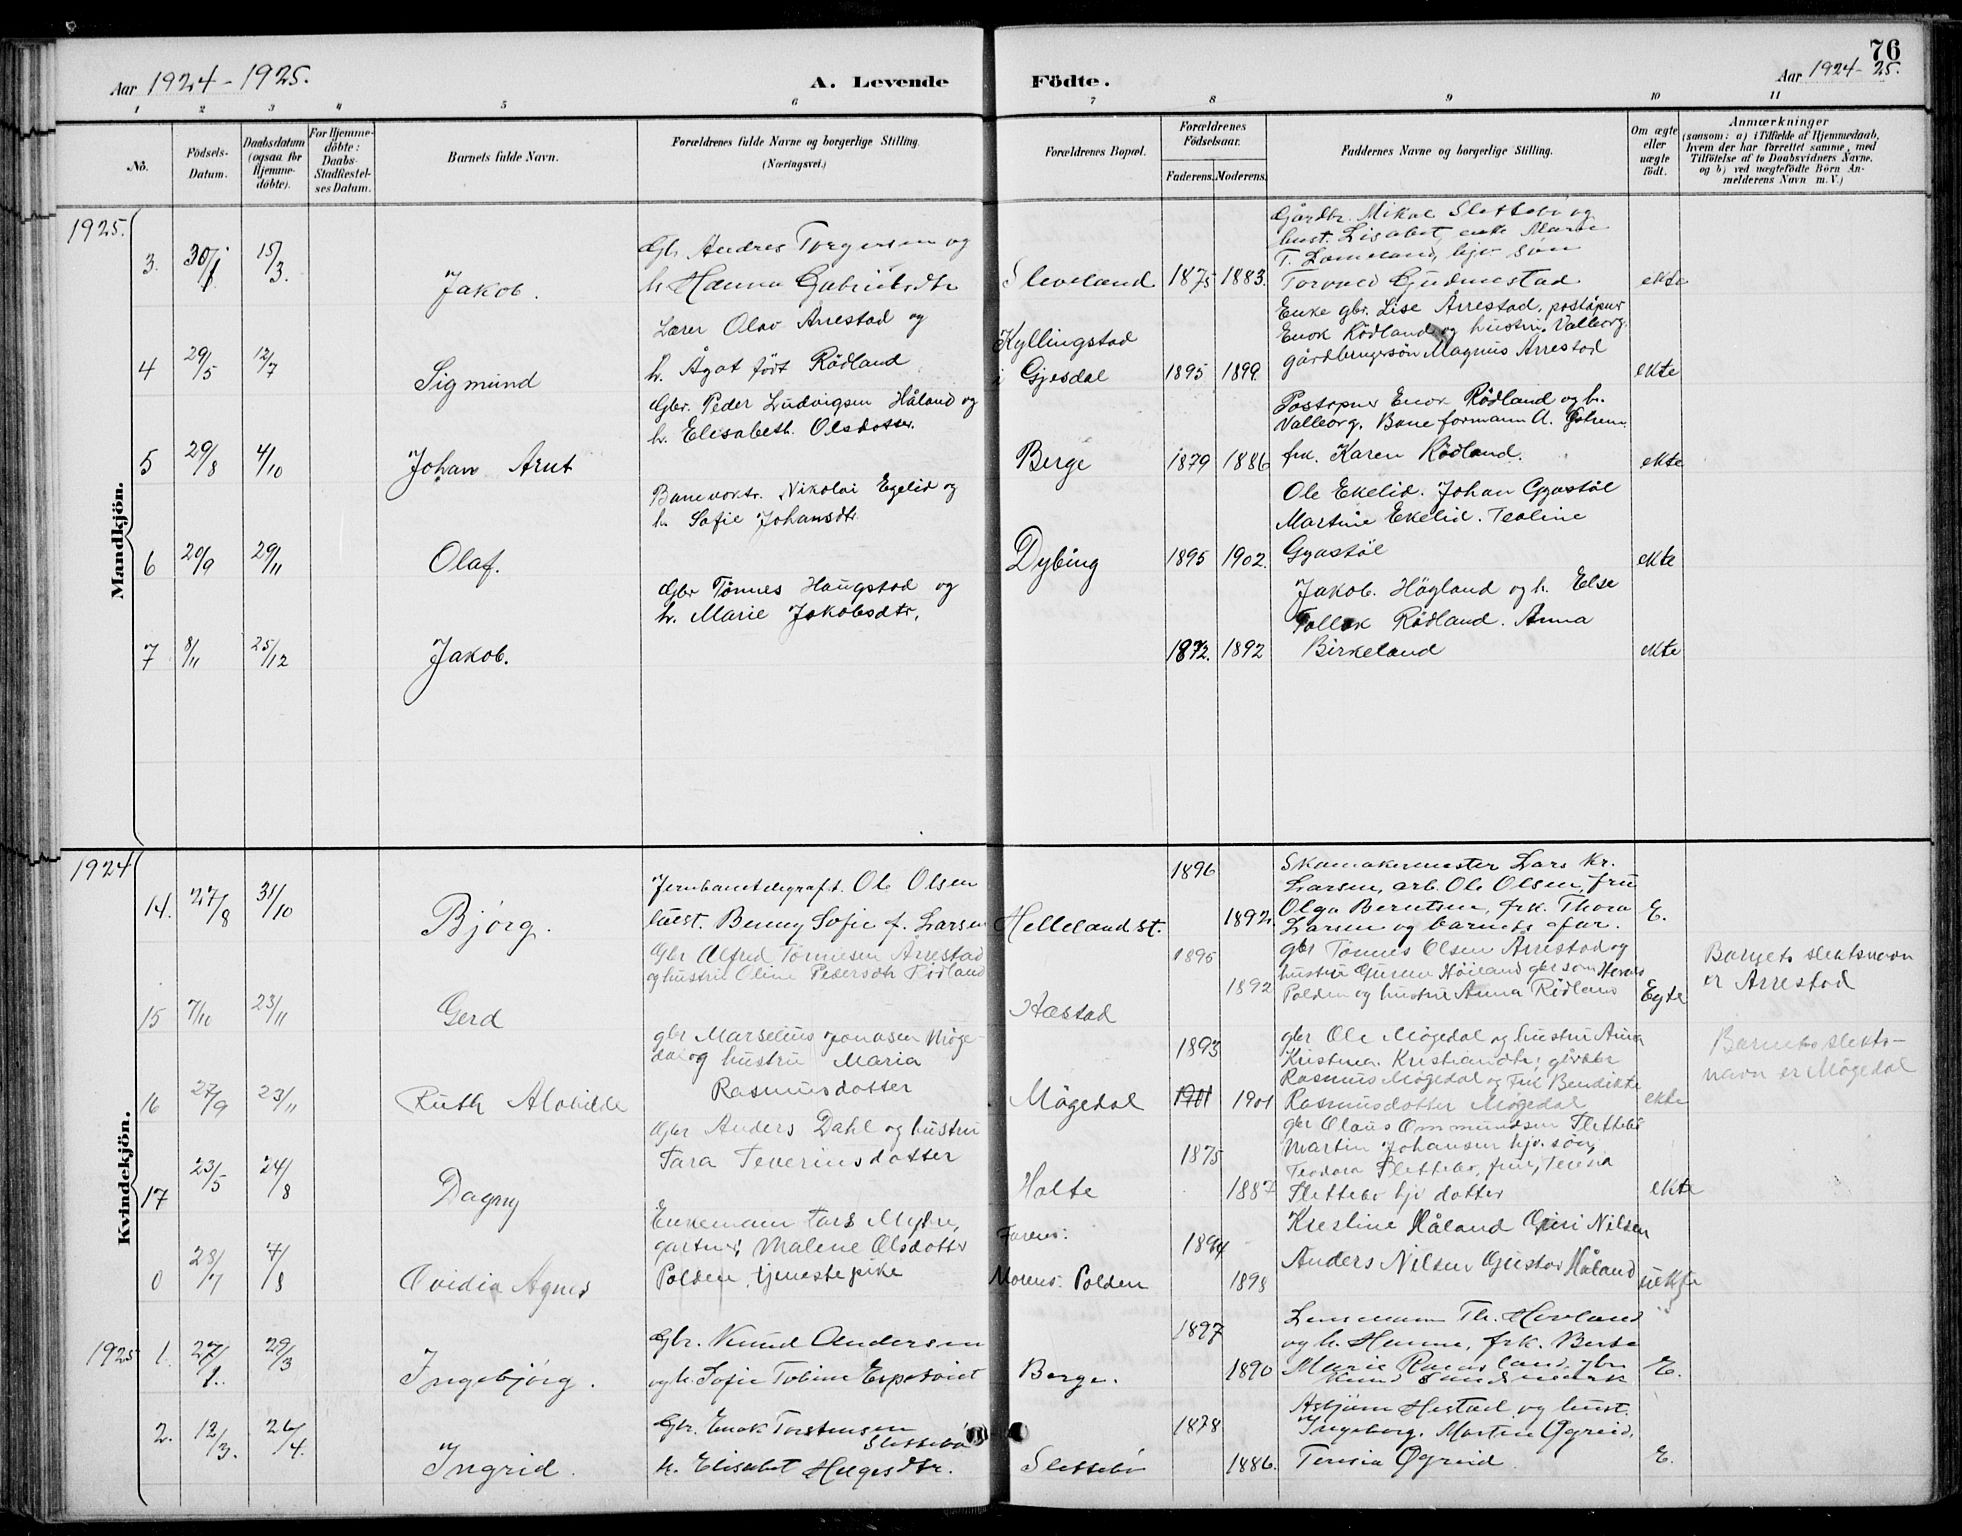 76
Aar 1924-1925.
A. Levende Födte.
Aar 1924-25.
1 2 3 4 5 6 7 8 9 10 11
No.
Födsels-Datum.
Daabsdatum (ogsaa for Hjemmedöbte).
For Hjemmedöbte: Daabs-Stadfæstelses Datum.
Barnets fulde Navn.
Forældrenes fulde Navne og borgerlige Stilling. (Næringsvei.)
Forældrenes Bopæl.
Forældrenes Födselsaar.
Faderens. Moderens.
Faddernes Navne og borgerlige Stilling.
Om ægte eller uægte födt.
Anmærkninger
(saasom: a) i Tilfælde af Hjemmedaab, hvem der har forrettet samme, med Tilföielse af to Daabsvidners Navne, og b) ved uægtefödte Börn Anmelderens Navn m.V.)
Mandkjön.
1925.
3. 30/1 15/3. Jakob.
Gbr. Andres Torgersen og
h. Hanna Gabrielsdtr
Sleveland 1875 1883.
Gårdbr. Mikal Slettebö og
hust. Lisabet, enke Marie
T. Lomeland, hjv. søn
Torvald Gudmestad
ekte
4 29/5 12/7 Sigmund
Lærer Olav Årrestad og
h. Ågot født Rödland
Kyllingstad
i Gjesdal 1895 1899.
Enke gbr. Lise Årrestad, poståpner
Enok Rödland og hustru Valborg.
gårdbrugersön Magnus Årrestad
ekte
5 29/8 4/10 Johan Arnt
Gbr. Peder Ludvigsen Håland og
h. Elisabeth Olsdotter.
Berge 1879 1886
Postopner Enok Rödland og h.
Valborg. Baneformann A.
frk. Karen Rödland.
ekte
6 20/9 29/11 Olaf.
Banevoktr. Nikolai Egelid og
h. Sofie Johansdtr
Dybing 1895 1902.
Ole Ekelid. Johan Gyastöl
Martine Ekelid. Teoline
Gyastöl
ekte
7 8/11 25/12 Jakob.
Gbr Tønnes Haugstad og
h. Marie Jakobsdtr,
1892. 1892
Jakob Högland og h. Else
Tollak Rödland. Anna
Birkeland
ekte
Kvindekjön.
1924
14. 27/8 31/10 Bjørg.
Jernbanetelegrafi. Ole Olsen
hust. Benny Sofie f. Larsen
Helleland st. 1896 1892.
Skomakermester Lars Kr.
Larsen, arb. Ole Olsen, fru
Olga Berntsen, frk. Thora
Larsen og barnets afar.
E.
15 7/10 23/11 Gerd
Gbr Alfred Tönnesen Årrestad
og hustru Oline Pedersdtr Rödland
Hæstad 1895 1892
gbr Tønnes Olsen Årrestad og
hustru Guren Höiland gbr søn
Polden og hustru Anna Rödland
Egte
Barnets slektsnavn
er Årrestad
16 27/9 23/11 Ruth Alvhilde
gbr Marselius Jonasen Möge-
dal og hustru Maria
Rasmusdotter
Mögedal 1893 1901 1901
gbr Ole Mögedal og hustru Anna
Kristina Kristiandtr; gårdbr
Rasmus Mögedal og Frk Bendikte
Rasmusdotter Mögedal
ekte
Barnets slekts-
navn er Mögedal
17 23/5 24/8 Dagny
Gbr Anders Dahl og hustru
Tara Teverinsdotter
Holte 1875 1887
gbr Olaus Ommundsen Slettebö
Martin Johansen hjv. søn,
Teodora Slettebö, frue, Teresia
Slettebö hjv dotter
ekte
0 28/7 7/8 Ovidia Agnes
Enkemann Lars Myhre,
gartner, Malene Olsdotter
Polden, tjenestepike
Farens:
Morens: Polden 1894 1898
Krestine Håland Guri Nilsen
Anders Nilsen Gustav Håland
uekte
1925
1. 27/1. 29/3 Ingebjørg.
Gbr. Knud Andersen
og h. Sofie Tobine Espetveit
Berge. 1897 1890
Lensmann Th. Hovland
og h. Hanne, frk. Berte
Marie gbr
Knud
E.
2. 12/3. 26/4. Ingrid.
Gbr. Enok Torstensen
Slettebö
h. Elisabet Helgesdtr.
Slettebö 1878 1886.
Asbjørn Hestad og hust.
Ingeborg. Martin Øgreid,
Teresia Øgreid.
E.